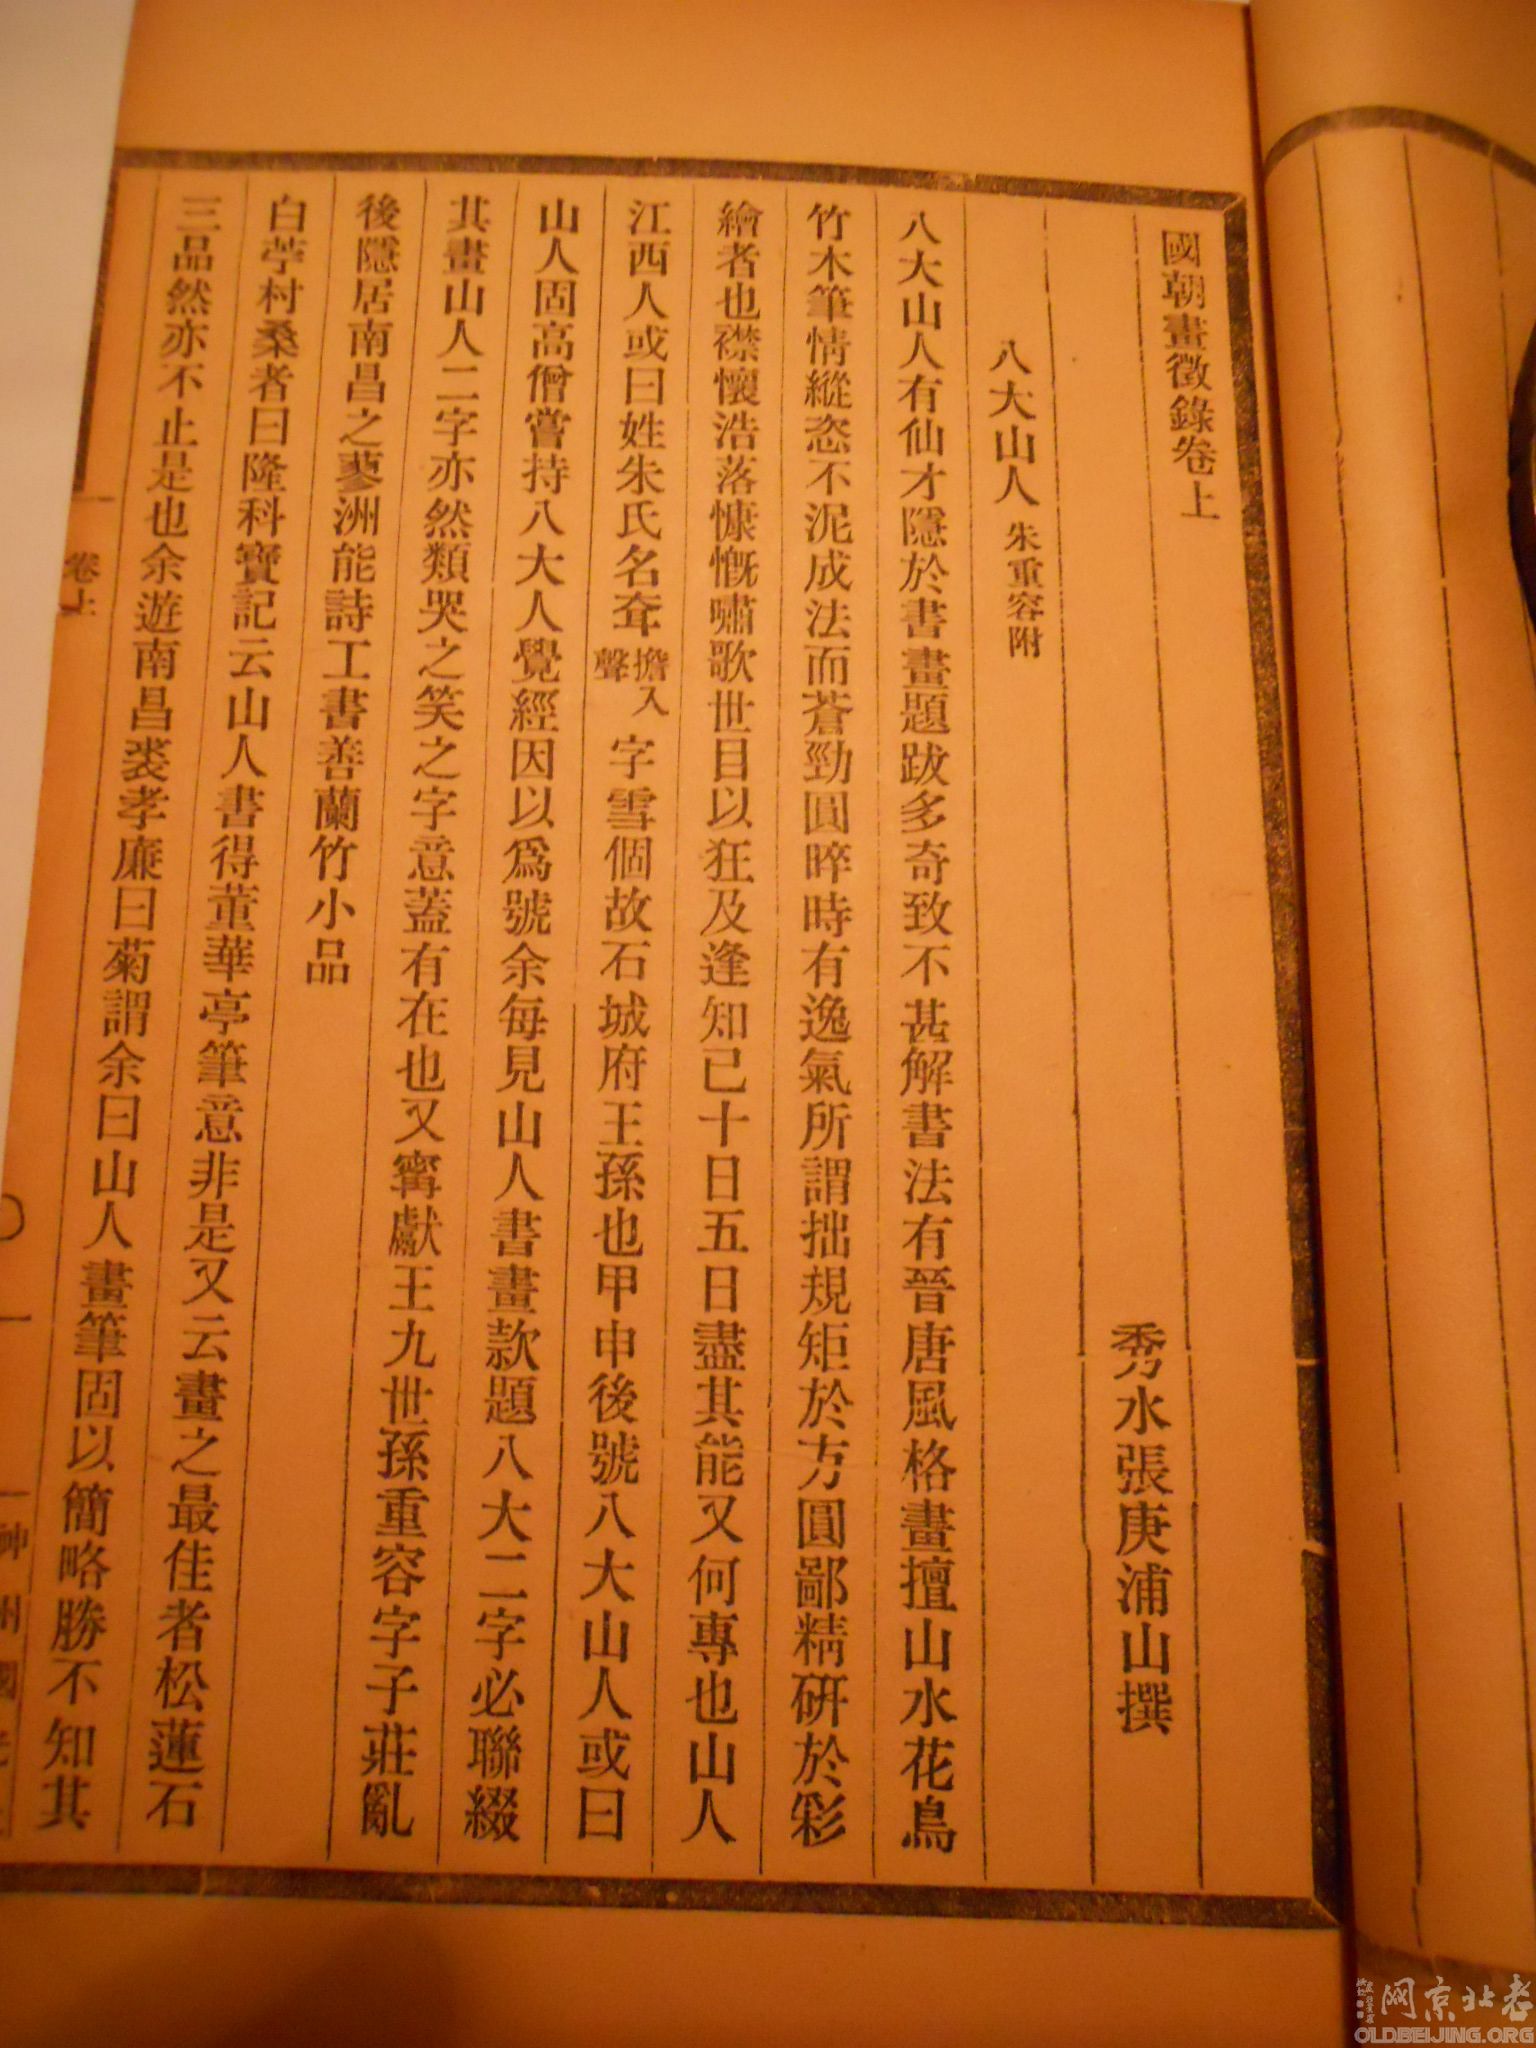 國朝畫徵錄卷上
秀水張庚浦山撰
八大山人 朱重容附
八大山人有仙才隱於書畫題跋多奇致不甚解書法有晉唐風格畫擅山水花鳥
竹木筆情縱恣不泥成法而蒼勁圓晬時有逸氣所謂拙規矩於方圓鄙精研於彩
繪者也襟懷浩落慷慨嘯歌世目以狂及逢知已十日五日盡其能又何專也山人
江西人或曰姓朱氏名耷 擔入聲 字雪個故石城府王孫也甲申後號八大山人或曰
山人固高僧嘗持八大人覺經因以爲號余每見山人書畫款題八大二字必聯綴
其畫山人二字亦然類哭之笑之字意蓋有在也又寗獻王九世孫重容字子莊亂
後隱居南昌之蓼洲能詩工書善蘭竹小品
白苧村桑者曰隆科寶記云山人書得董華亭筆意非是又云畫之最佳者松蓮石
三品然亦不止是也余遊南昌裘孝廉曰菊謂余曰山人畫筆固以簡略勝不知其
卷上
一
神州國光
老北京网
OLDBEIJING.ORG